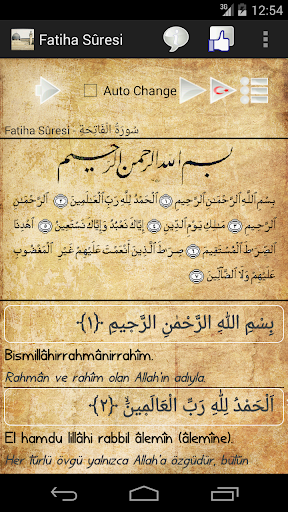 3G 12:54
Fatiha Sûresi
Auto Change
Fatiha Sûresi - سُورَةُ الْفَاتِحَةِ
بسم الله الرحمن الرحيم
بِسْمِ اللَّهِ الرَّحْمَٰنِ الرَّحِيمِ ﴿١﴾ الْحَمْدُ لِلَّهِ رَبِّ الْعَالَمِينَ ﴿٢﴾ الرَّحْمَٰنِ
الرَّحِيمِ ﴿٣﴾ مَالِكِ يَوْمِ الدِّينِ ﴿٤﴾ إِيَّاكَ نَعْبُدُ وَإِيَّاكَ نَسْتَعِينُ ﴿٥﴾ اهْدِنَا
الصِّرَاطَ الْمُسْتَقِيمَ ﴿٦﴾ صِرَاطَ الَّذِينَ أَنْعَمْتَ عَلَيْهِمْ غَيْرِ الْمَغْضُوبِ
عَلَيْهِمْ وَلَا الضَّالِّينَ ﴿٧﴾
بِسْمِ اللَّهِ الرَّحْمَٰنِ الرَّحِيمِ ﴿١﴾
Bismillâhirrahmânirrahîm.
Rahmân ve rahîm olan Allah'ın adıyla.
اَلْحَمْدُ لِلَّهِ رَبِّ الْعَالَمِينَۙ ﴿٢﴾
El hamdu lillâhi rabbil âlemîn (âlemîne).
Her türlü övgü yalnızca Allah'a özgüdür, bütün